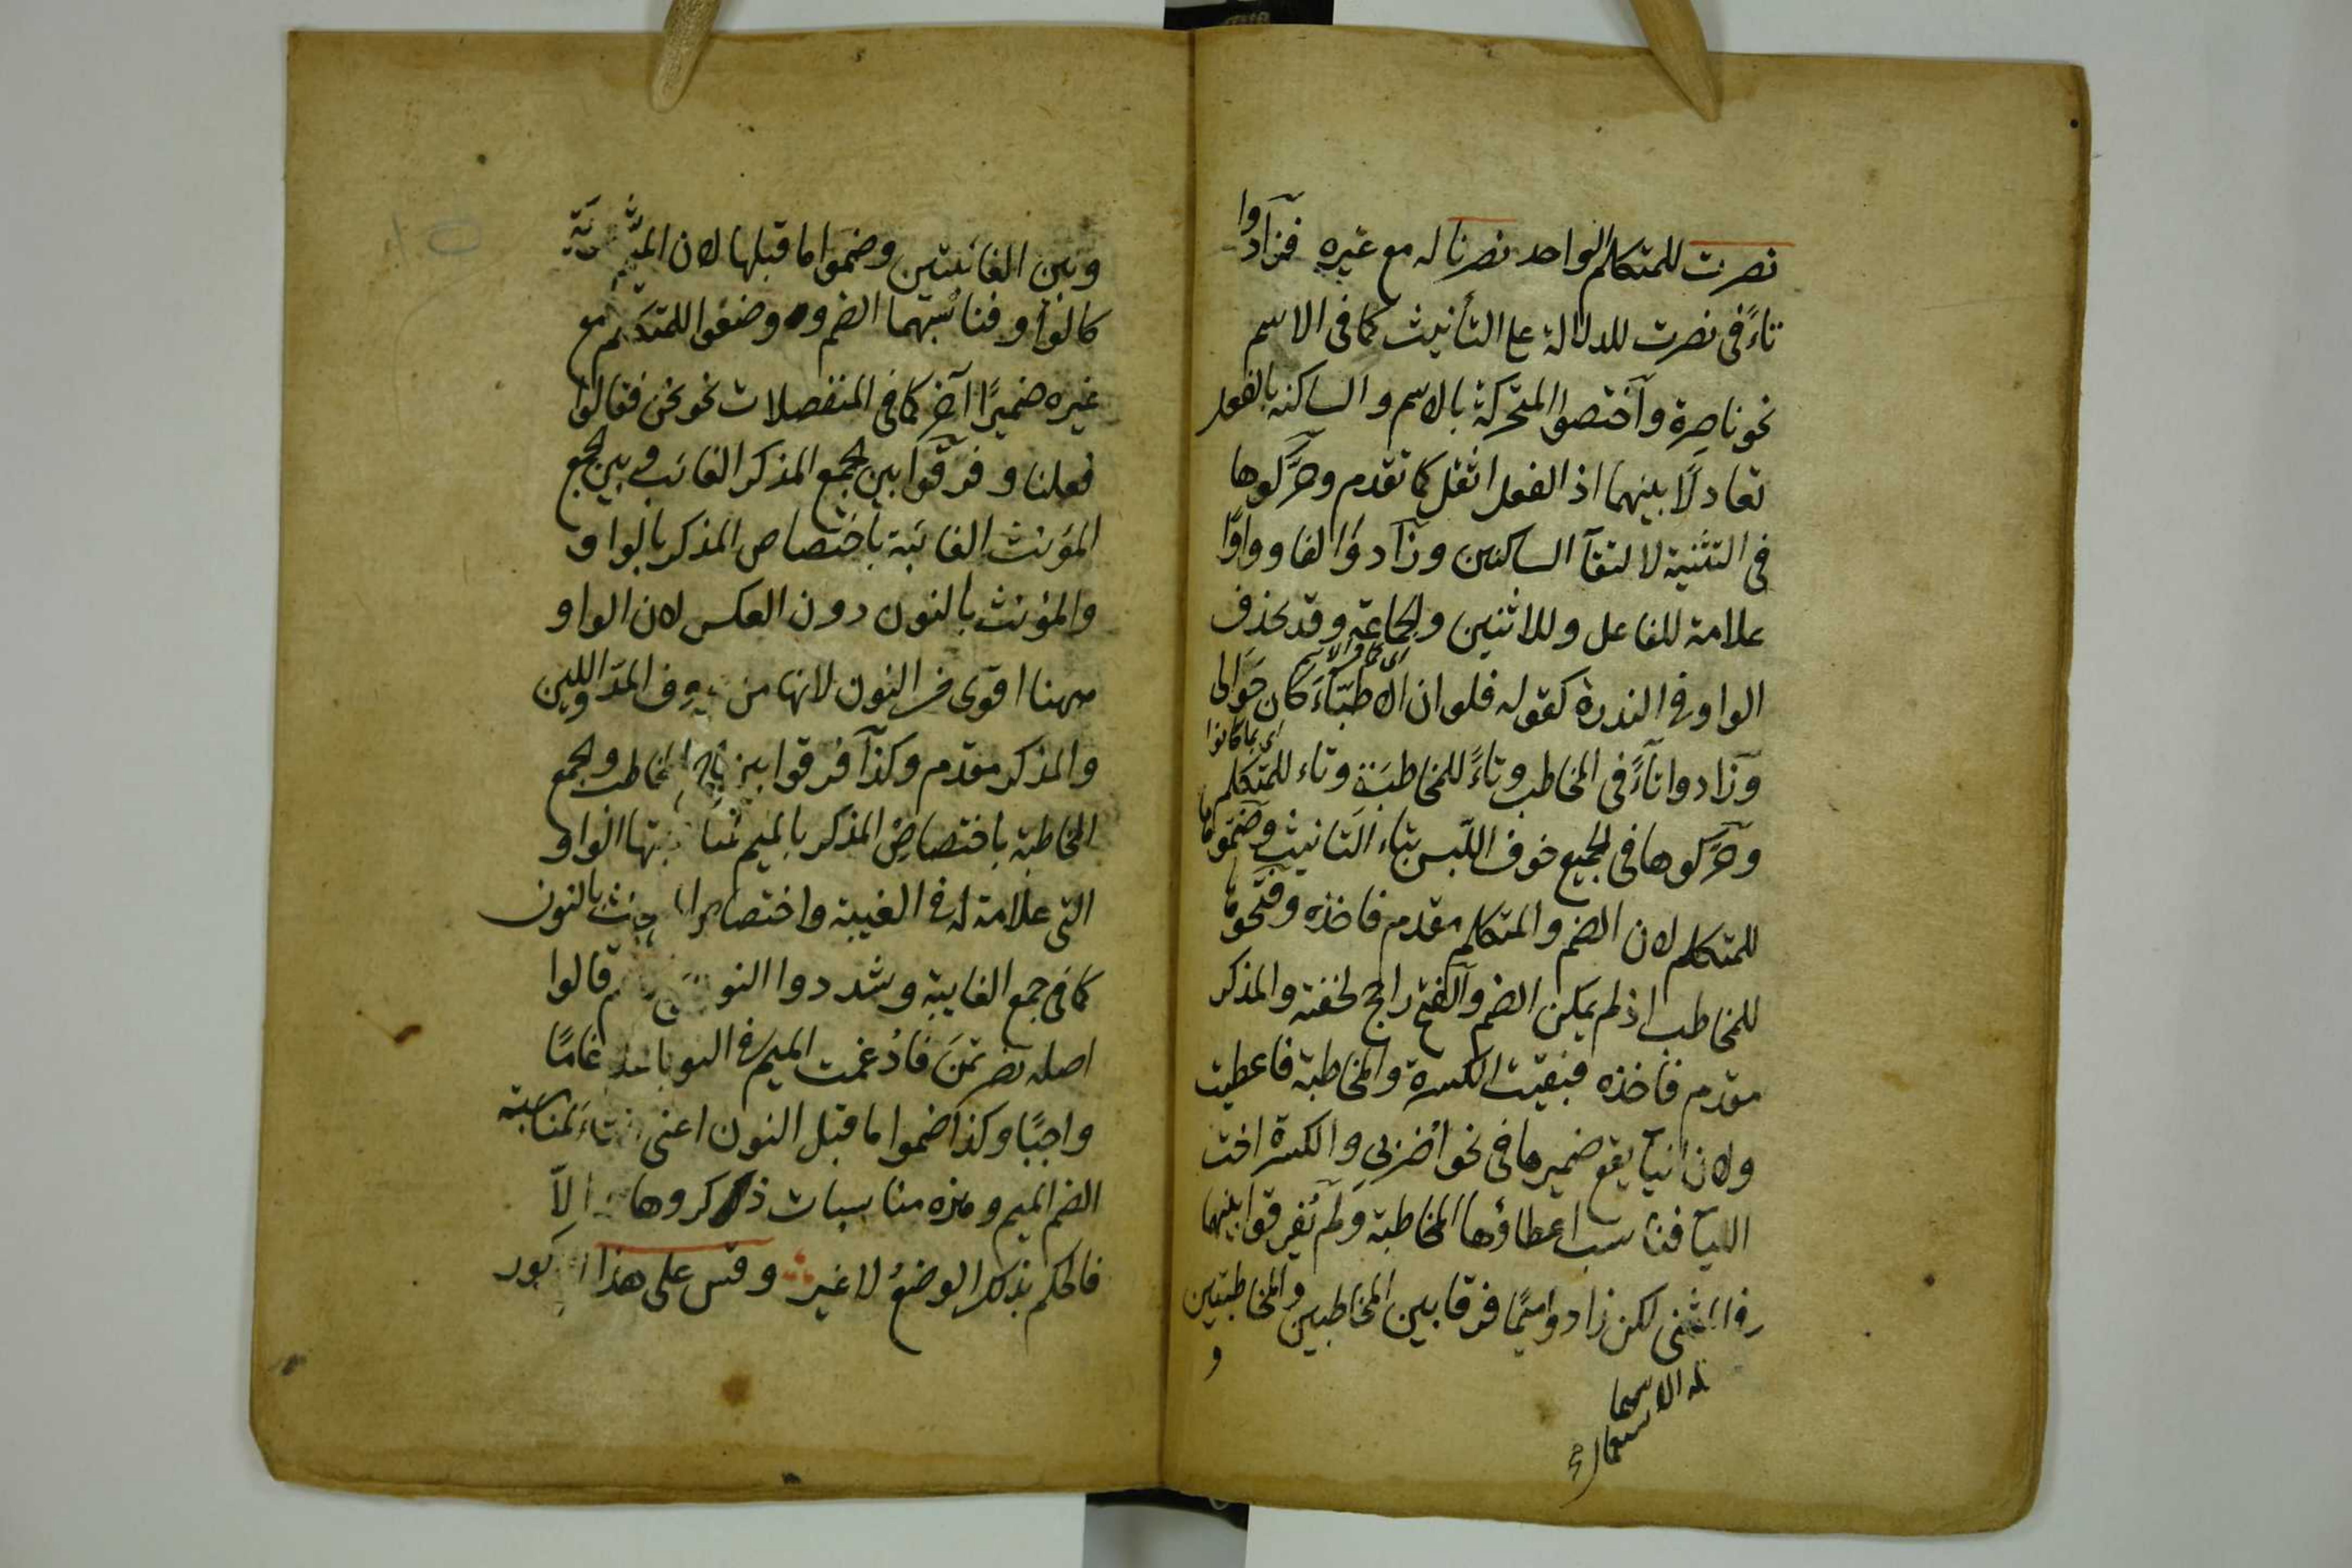 نصرت للمتكلم الواحد نصرنا له مع غيره فزادوا
تاءً فى نصرت للدلالة على التأنيث كما فى الاسم
نحو ناصرة وآختصوا المتحركة بالاسم والساكنه بالفعل
تعادلًا بينهما اذ الفعل اثقل كما تقدم وحرَّكوها
فى التثنية لالتقآ الساكنين وزآدوا الفا وواوًا
علامة للفاعل وللاثنين والجماعة وقد يحذف
الواو فى الندرة كقوله فلو ان الاطبّآءَ كان حَوَلى
اى كانوا
وزادوا تآءً فى المخاطب وتاءً للمخاطبَة وتاء للمتكلم
وحَرَّكوها فى الجميع خوف اللَّبس بتاء التانيث وضمّوها
للمتكلم لان الضم والمتكلم مقدم فاخذه وفتحوها
للمخاطب اذ لم يمكن الضم والفتح راجح لخفته والمذكر
مقدم فاخذه فبقيت الكسرة والمخاطبة فاعطيت
ولان اليآ يقع ضميرها فى نحو اضربى والكسرة اخت
اليآ فناسب اعطاؤها المخاطبة ولم يُفرقوا بينهما
فى المثنى لكن زادوا ميمًا فرقا بين المخاطبين والمخاطبتين
و
وبين الغائبتين وضمّوا ما قبلها لان الميم شفوية
كالواو فناسبهما الضم و وضعوا للمتكلم مع
غيره ضميرًا آخر كما فى المنفصلات نحو نحن فقالوا
فعلنا وفرّقوا بين الجمع المذكر الغائب وبين جمع
المؤنث الغائبة باختصاص المذكر بالواو
والمؤنث بالنون دون العكس لان الواو
ههنا اقوى من النون لانها من حروف المدّ واللين
والمذكر مقدم وكذآ فرقوا بين جمع المخاطب وجمع
المخاطبة باختصاص المذكر بالميم لمناسبتها الواو
التى علامة له فى الغيبة واختصاص المؤنث بالنون
كما فى جمع الغايبة وشددوا النون قالوا
اصله نصرتمنَ فادُغمت الميم فى النون ادغامًا
واجبًا وكذا ضموا ما قبل النون اعنى التاءَ لمناسبته
الضم الميم وهذه مناسبات ذكروها والّا
فالحكم بذلك الوضعُ لا غير وقس على هذا المذكور